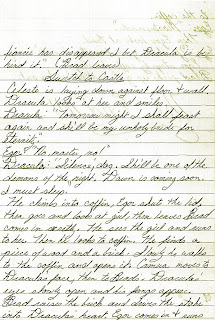 has disappeared & bet Dracula is be-
hind it." (Brad leaves)
Switch to Castle
Celeste is laying down against floor & wall.
Dracula looks at her and smiles.
Dracula: "Tomorrow night I shall feast
again and she'll be my unholy bride for
Eternity."
Egor: "No master, no!"
Dracula: "Silence, dog. She'll be one of the
demons of the night. Dawn is coming soon
I must sleep.
He climbs into coffin, Egor shuts the lid,
then goes and looks at girl, then leaves. Brad
comes in secretly. He sees the girl and runs
to her. Then he looks to coffin. He finds a
piece of wood and a brick. Slowly he walks
to the coffin and opens it. Camera moves to
Dracula's face, then to Brad's. Dracula's
eyes slowly open and his fangs appear.
Brad raises the brick and drives the stake
into Dracula's heart. Egor comes in & runs